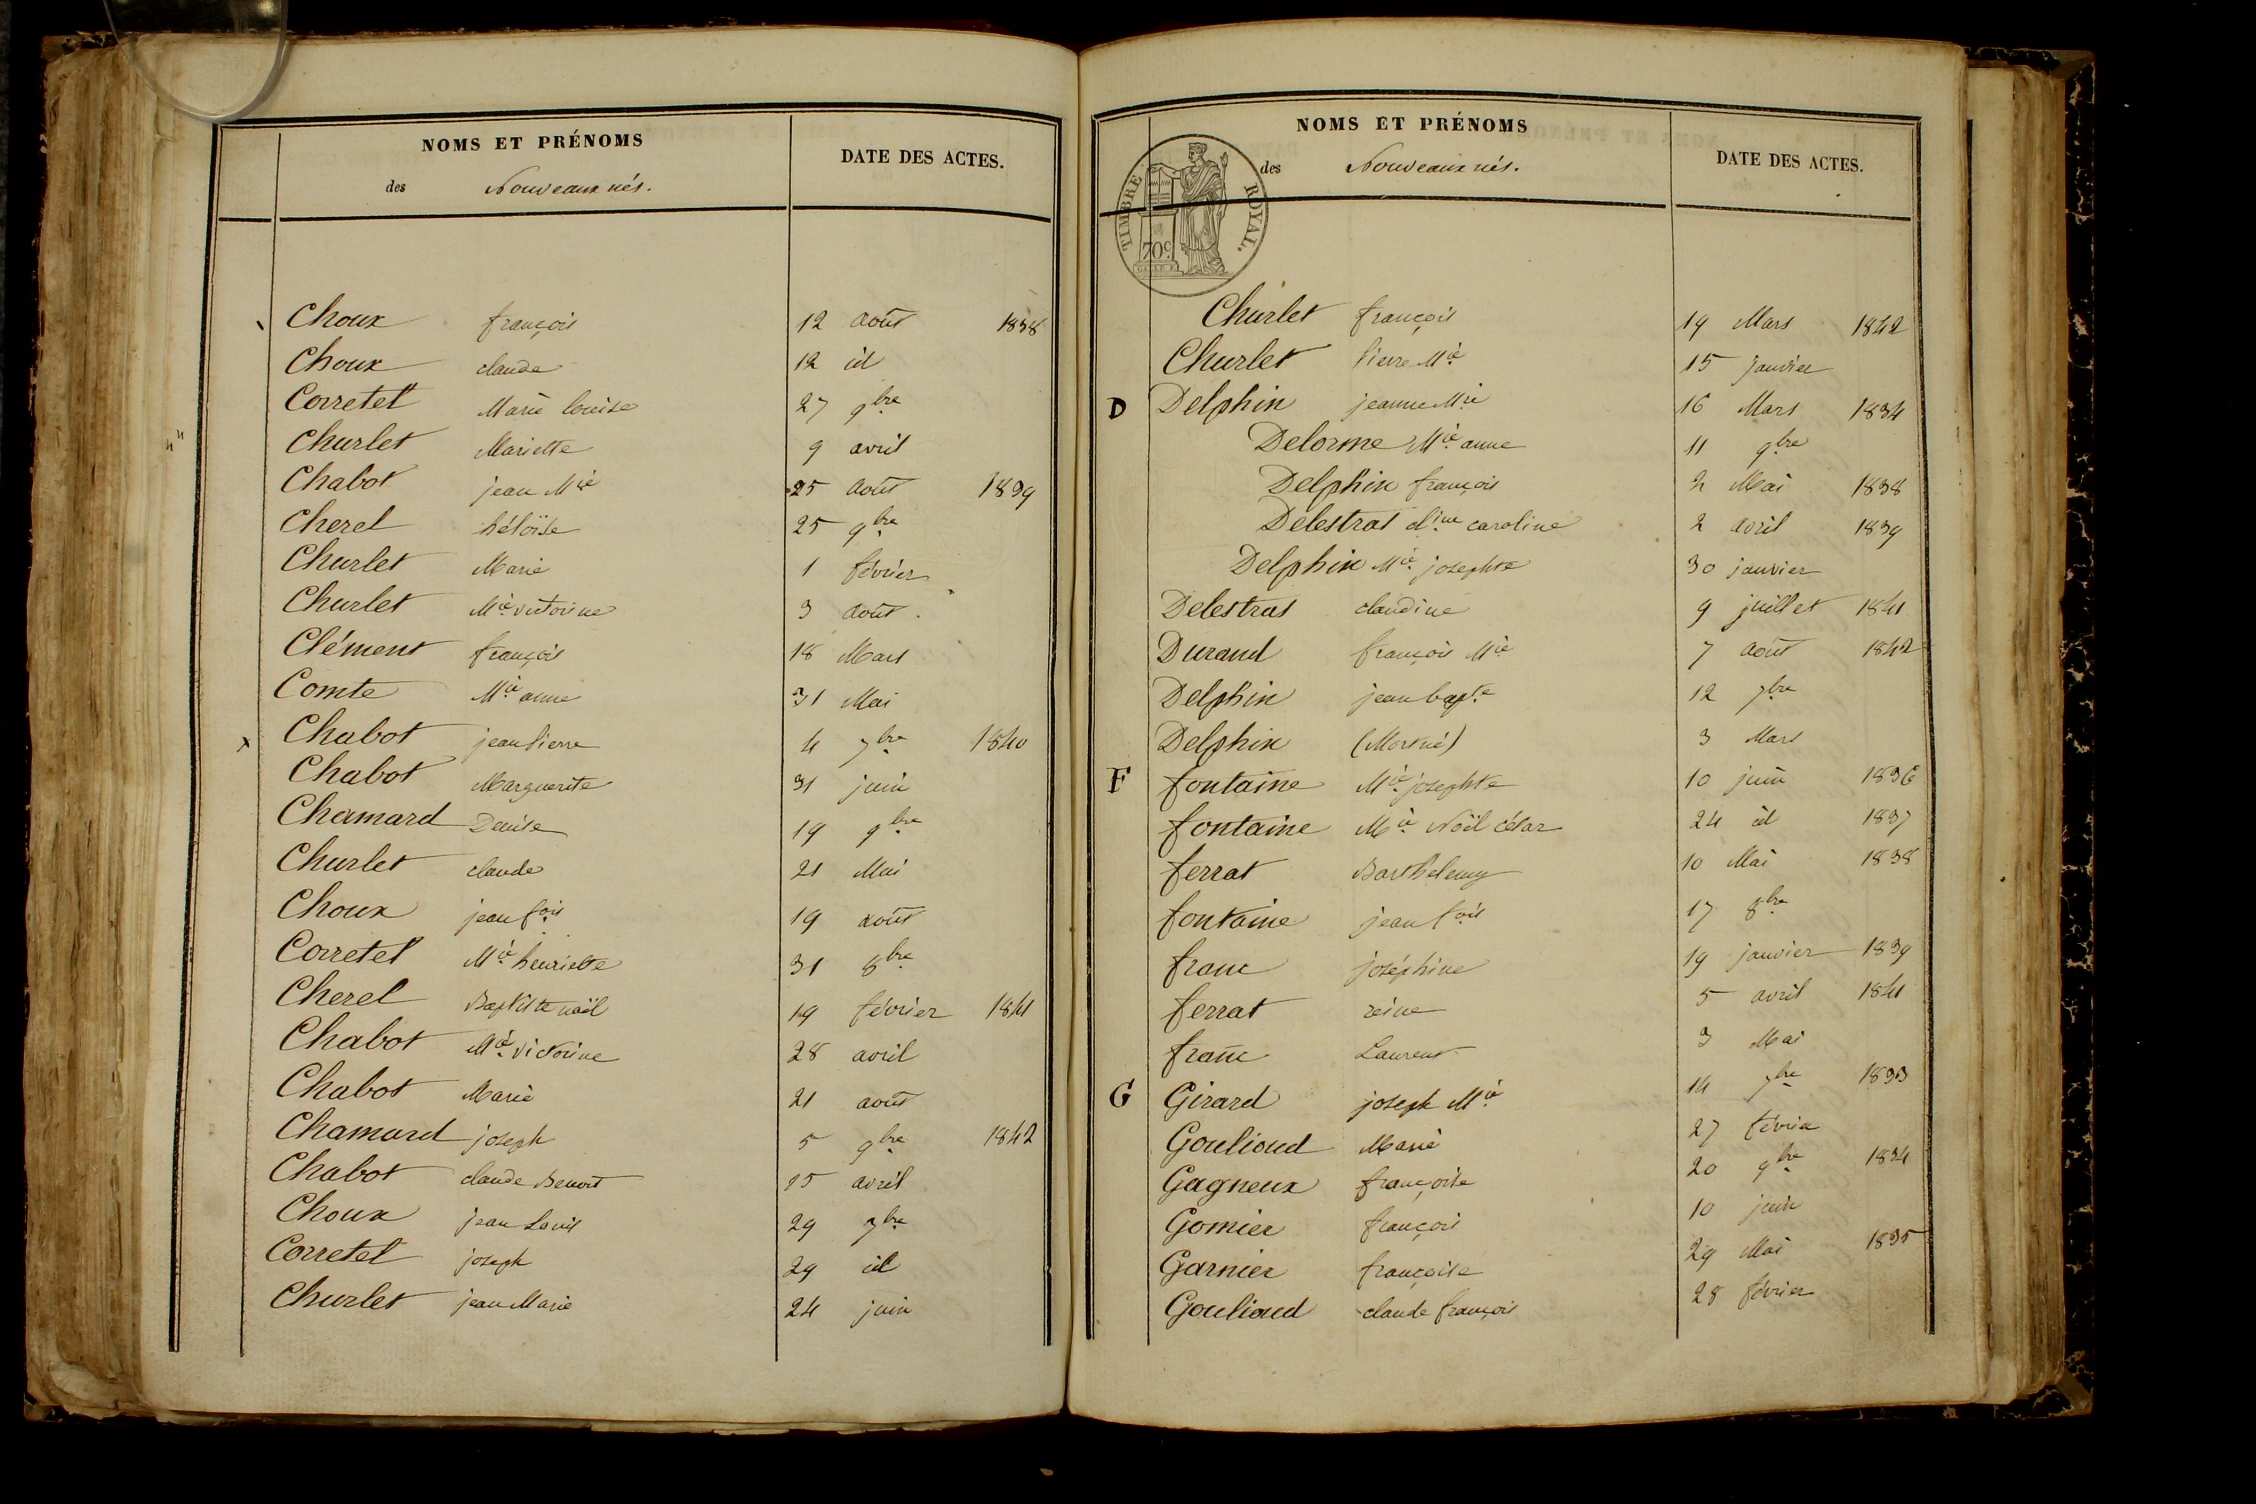 NOMS ET PRÉNOMS
des Nouveaux nés.
DATE DES ACTES.
Choux françois 12 août 1838
Choux claude 12 id
Corretel Marie louise 27 9bre
Churlet Mariette 9 avril
Chabot jean Mie 25 août 1839
Cherel héloïse 25 9bre
Churlet Marie 1 février
Churlet Mie victorine 3 août
Clément françois 18 Mars
Comte Mie anne 31 Mai
Chabot jean Pierre 4 7bre 1840
Chabot Marguerite 31 juin
Chamard Denise 19 9bre
Churlet claude 21 Mai
Choux jean fois 19 août
Corretel Mie henriette 31 8bre
Cherel Baptiste noël 19 février 1841
Chabot Mie victorine 28 avril
Chabot Marie 21 août
Chamard joseph 5 9bre 1842
Chabot claude Benoit 15 avril
Choux jean Louis 29 7bre
Corretel joseph 29 id
Churlet jean Marie 24 juin
NOMS ET PRÉNOMS
des Nouveaux nés.
DATE DES ACTES.
TIMBRE ROYAL.
70c
Churlet françois 19 Mars 1842
Churlet Pierre Mie 15 janvier
D Delphin jeanne Mie 16 Mars 1834
Delorme Mie anne 11 9bre
Delphin françois 2 Mai 1838
Delestras cline caroline 2 avril 1839
Delphin Mie josephte 30 janvier
Delestras claudine 9 juillet 1841
Durand françois Mie 7 août 1842
Delphin jean bapte 12 7bre
Delphin (Mort né) 3 Mars
F fontaine Mie josephte 10 juin 1836
fontaine Mie Noël césar 24 id 1837
ferrat Barthelemy 10 Mai 1838
fontaine jean fois 17 8bre
franc joséphine 19 janvier 1839
ferrat reine 5 avril 1841
franc Laurent 3 Mai
G Girard joseph Mie 14 7bre 1833
Goulioud Marie 27 février
Gagneux françoise 20 9bre 1834
Gomier françois 10 juin
Garnier françoise 29 Mai 1835
Goulioud claude françois 28 février